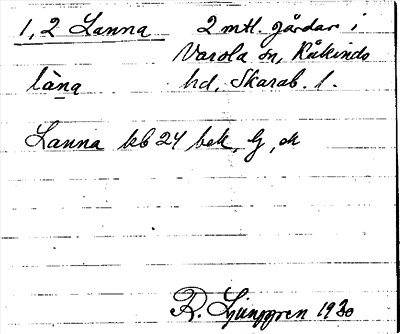 1, 2 Lanna 2 mtl. gårdar i
Varola sn, Kåkinds
låna hd, Skarab. l.
Lanna kb 24 bek, G, ek
R. Ljunggren 1930